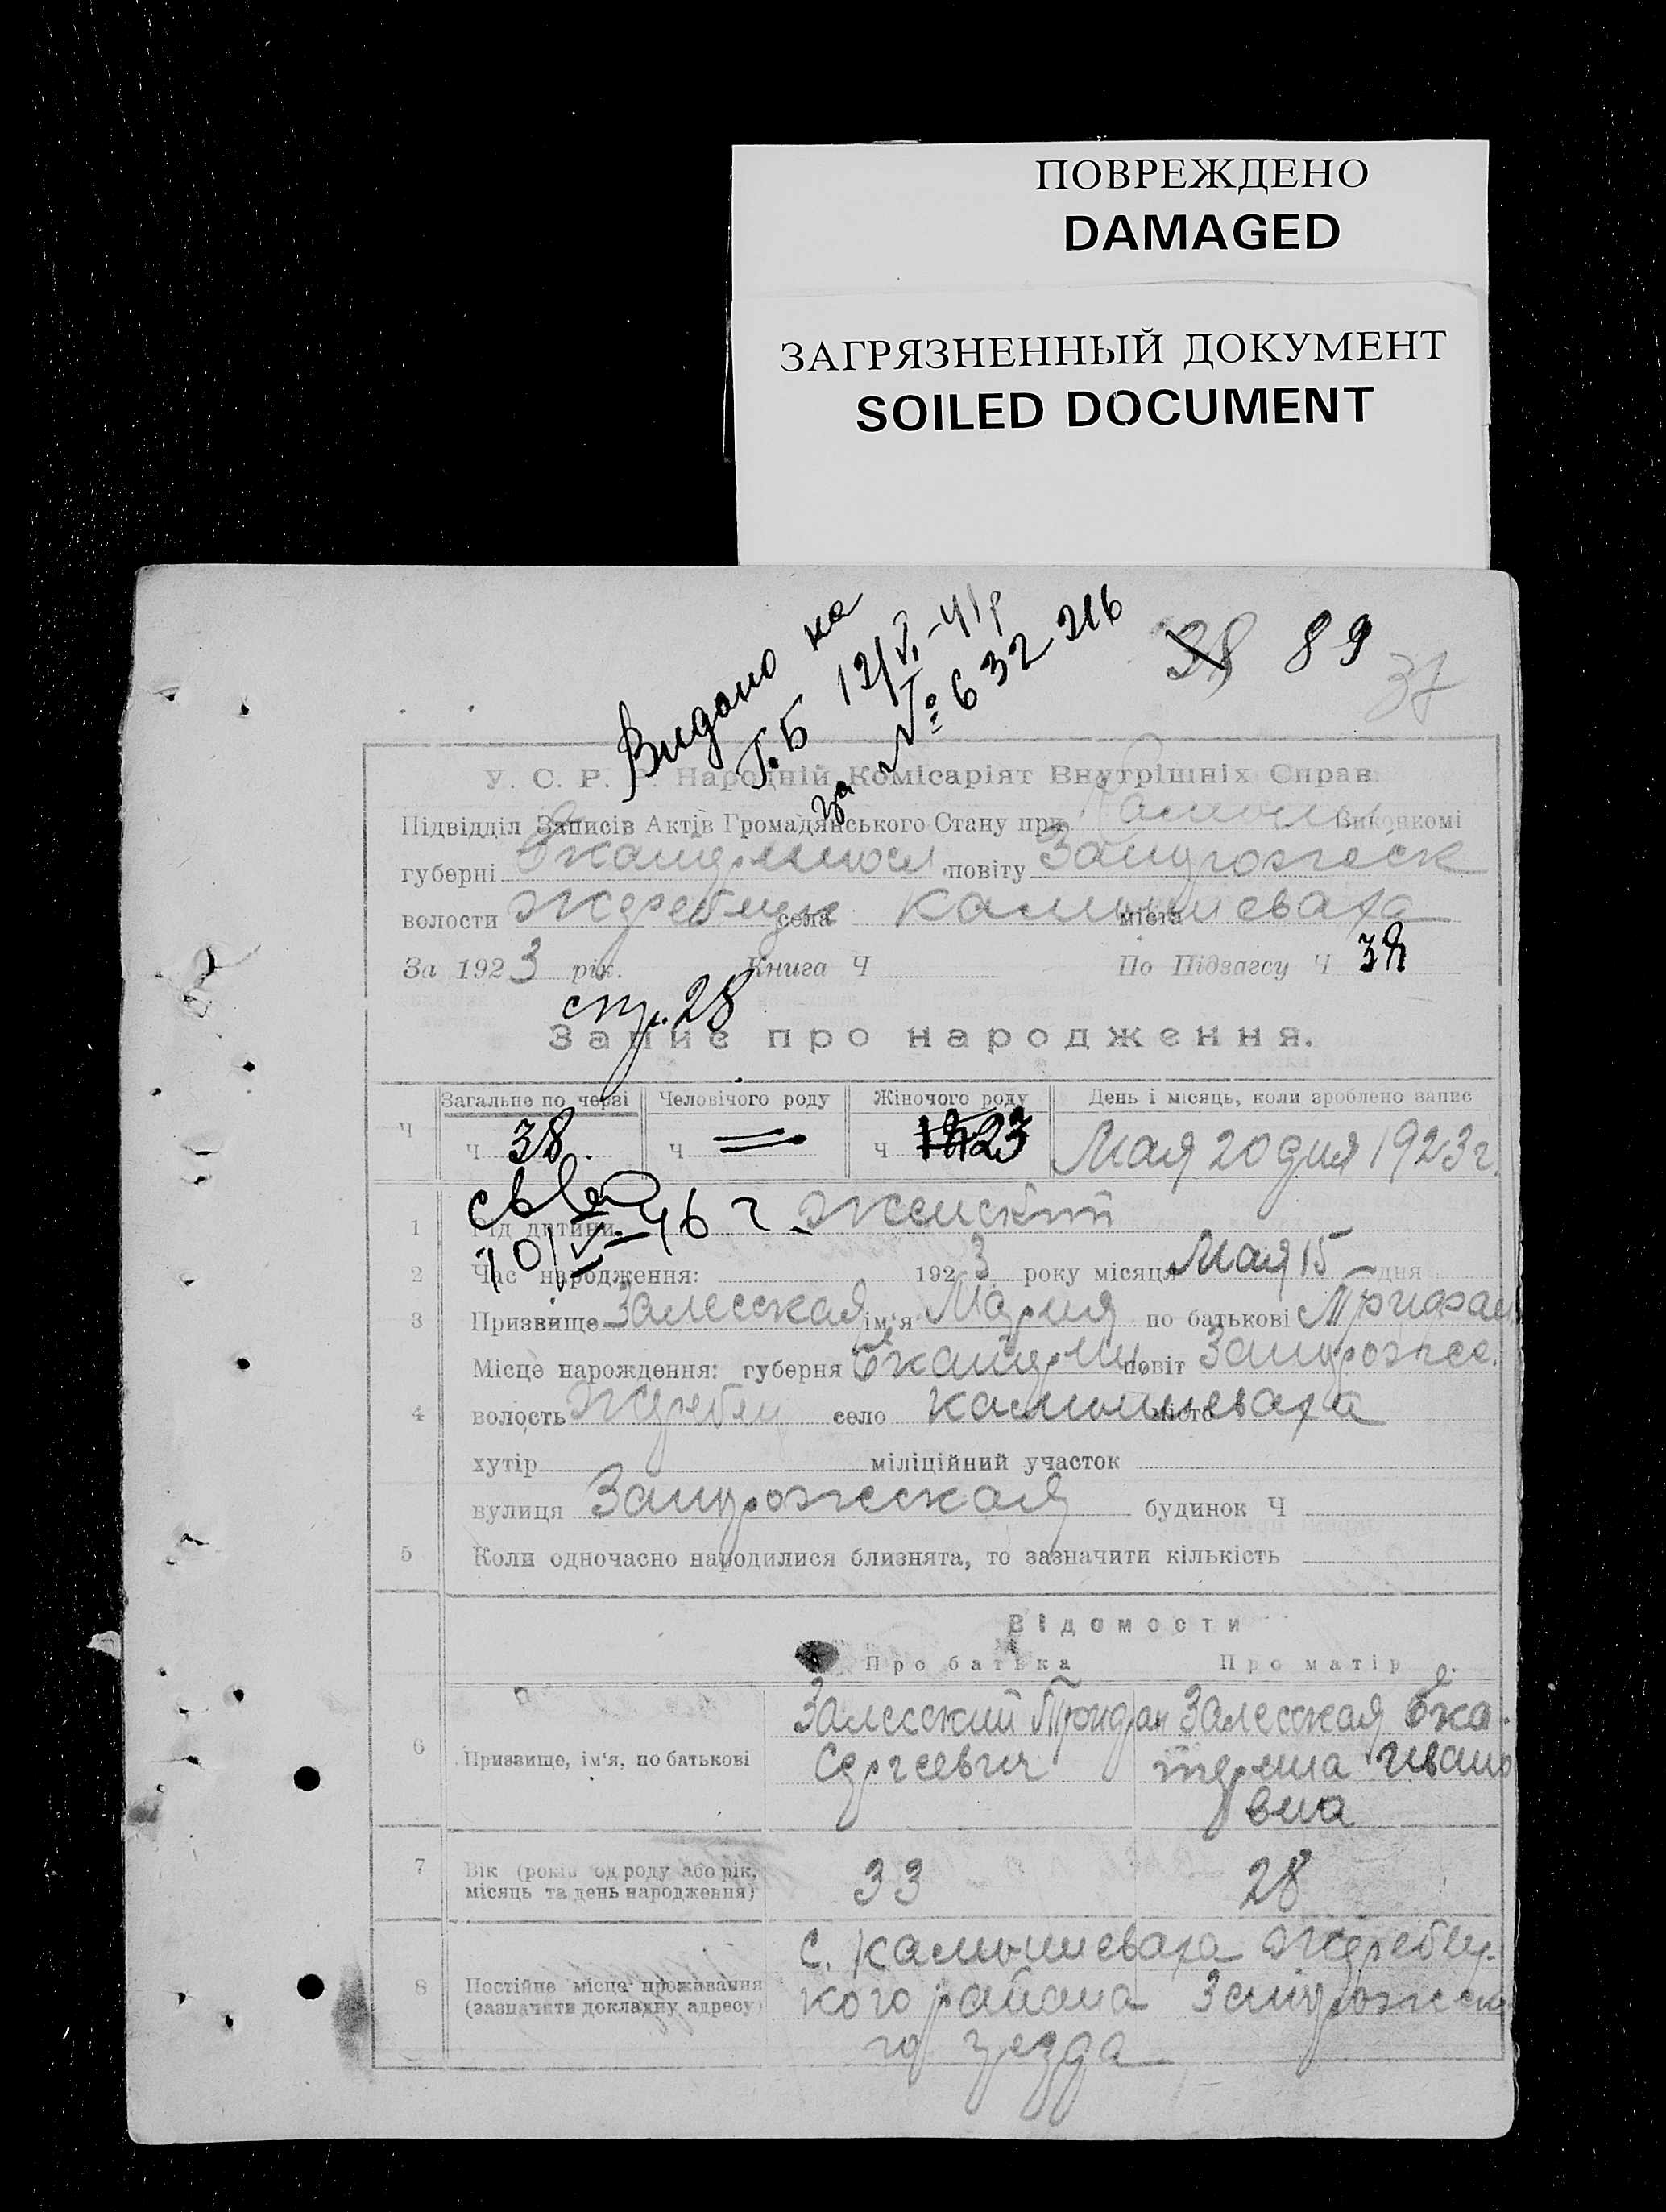 ПОВРЕЖДЕНО
DAMAGED
ЗАГРЯЗНЕННЫЙ ДОКУМЕНТ
SOILED DOCUMENT
38 89 37
Видано на
Г.Б 12/VI-41р
за № 632216
У. С. Р. Р. Народній Комісаріят Внутрішніх Справ
Підвідділ Записів Актів Громадянського Стану при Виконкомі
губерні повіту Запорожск
волости Жеребецк села Камышеваха міста
За 1923 рік. Книга Ч По Підзагсу Ч
стр. 28
Запис про народження.
Загальне по черзі Человічого роду Жіночого роду День і місяць, коли зроблено запис
Ч Ч 38. Ч = Ч 23 Мая 20 дня 1923 г.
46 г.
1 Рід дитини Женский
2 Час народження: 1923 року місяця Мая 15 дня
3 Призвище Залесская ім'я Мария по батькові Трифан
Місце народження: губерня Екатерин повіт Запорожск.
4 волость Жеребец село Камышеваха місто
хутір міліційний участок
вулиця Запорожская будинок Ч
5 Коли одночасно народилися близнята, то зазначити кількість
Відомости
Про батька Про матір
Залесский Трифан Залесская Ека-
6 Призвище, ім'я, по батькові Сергеевич терина Ивано
вна
7 Вік (років од роду або рік, місяць та день народження) 33 28
с. Камышеваха Жеребец-
8 Постійне місце проживання (зазначити докладну адресу) кого района Запорожско
го уезда